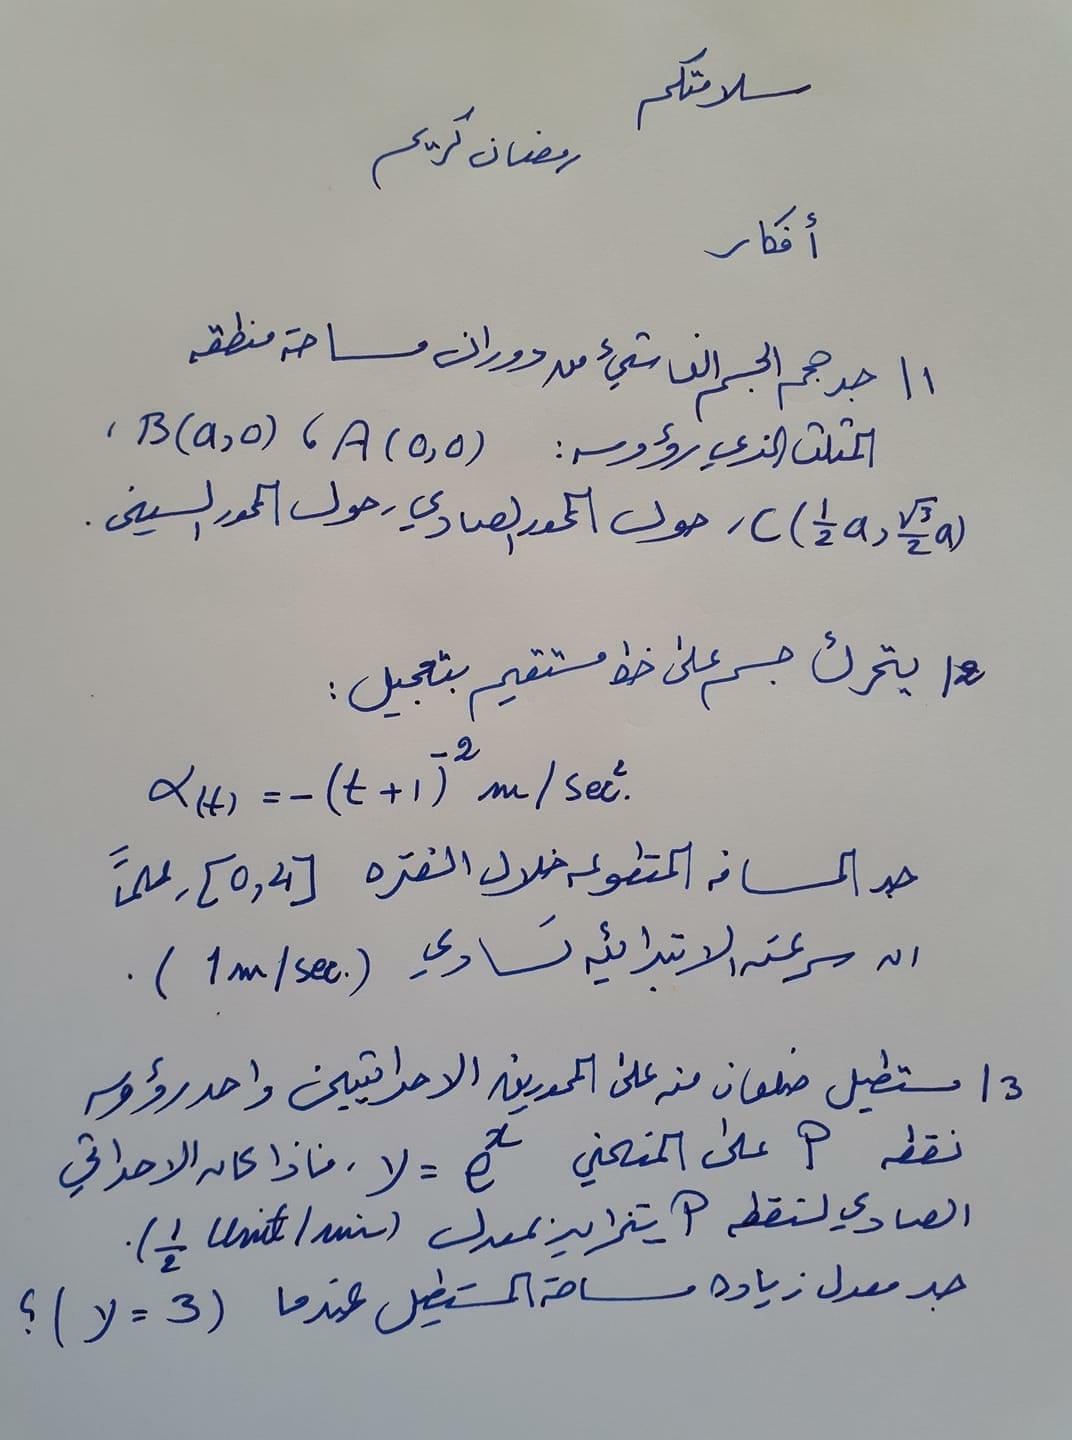 سلامتكم
رمضان كريم
أفكار
1/ جد حجم الجسم الناشئ من دوران مساحة منطقه
المثلث الذي رؤوسه: A(0,0) ، B(a,0) ،
C(½a, √3/2 a) ، حول المحور الصادي ، حول المحور السيني .
2/ يتحرك جسم على خط مستقيم بتعجيل :
α(t) = -(t+1)⁻² m/sec².
جد المسافه المقطوعه خلال الفتره [0,4] ، علماً
ان سرعته الابتدائيه تساوي (1m/sec.) .
3/ مستطيل ضلعان منه على المحورين الاحداثيين واحد رؤوسه
نقطه P على المنحني y = eˣ ، فاذا كان الاحداثي
الصادي لنقطه P يتزايد بمعدل (½ Unit/min).
جد معدل زياده مساحة المستطيل عندما (y = 3) ؟